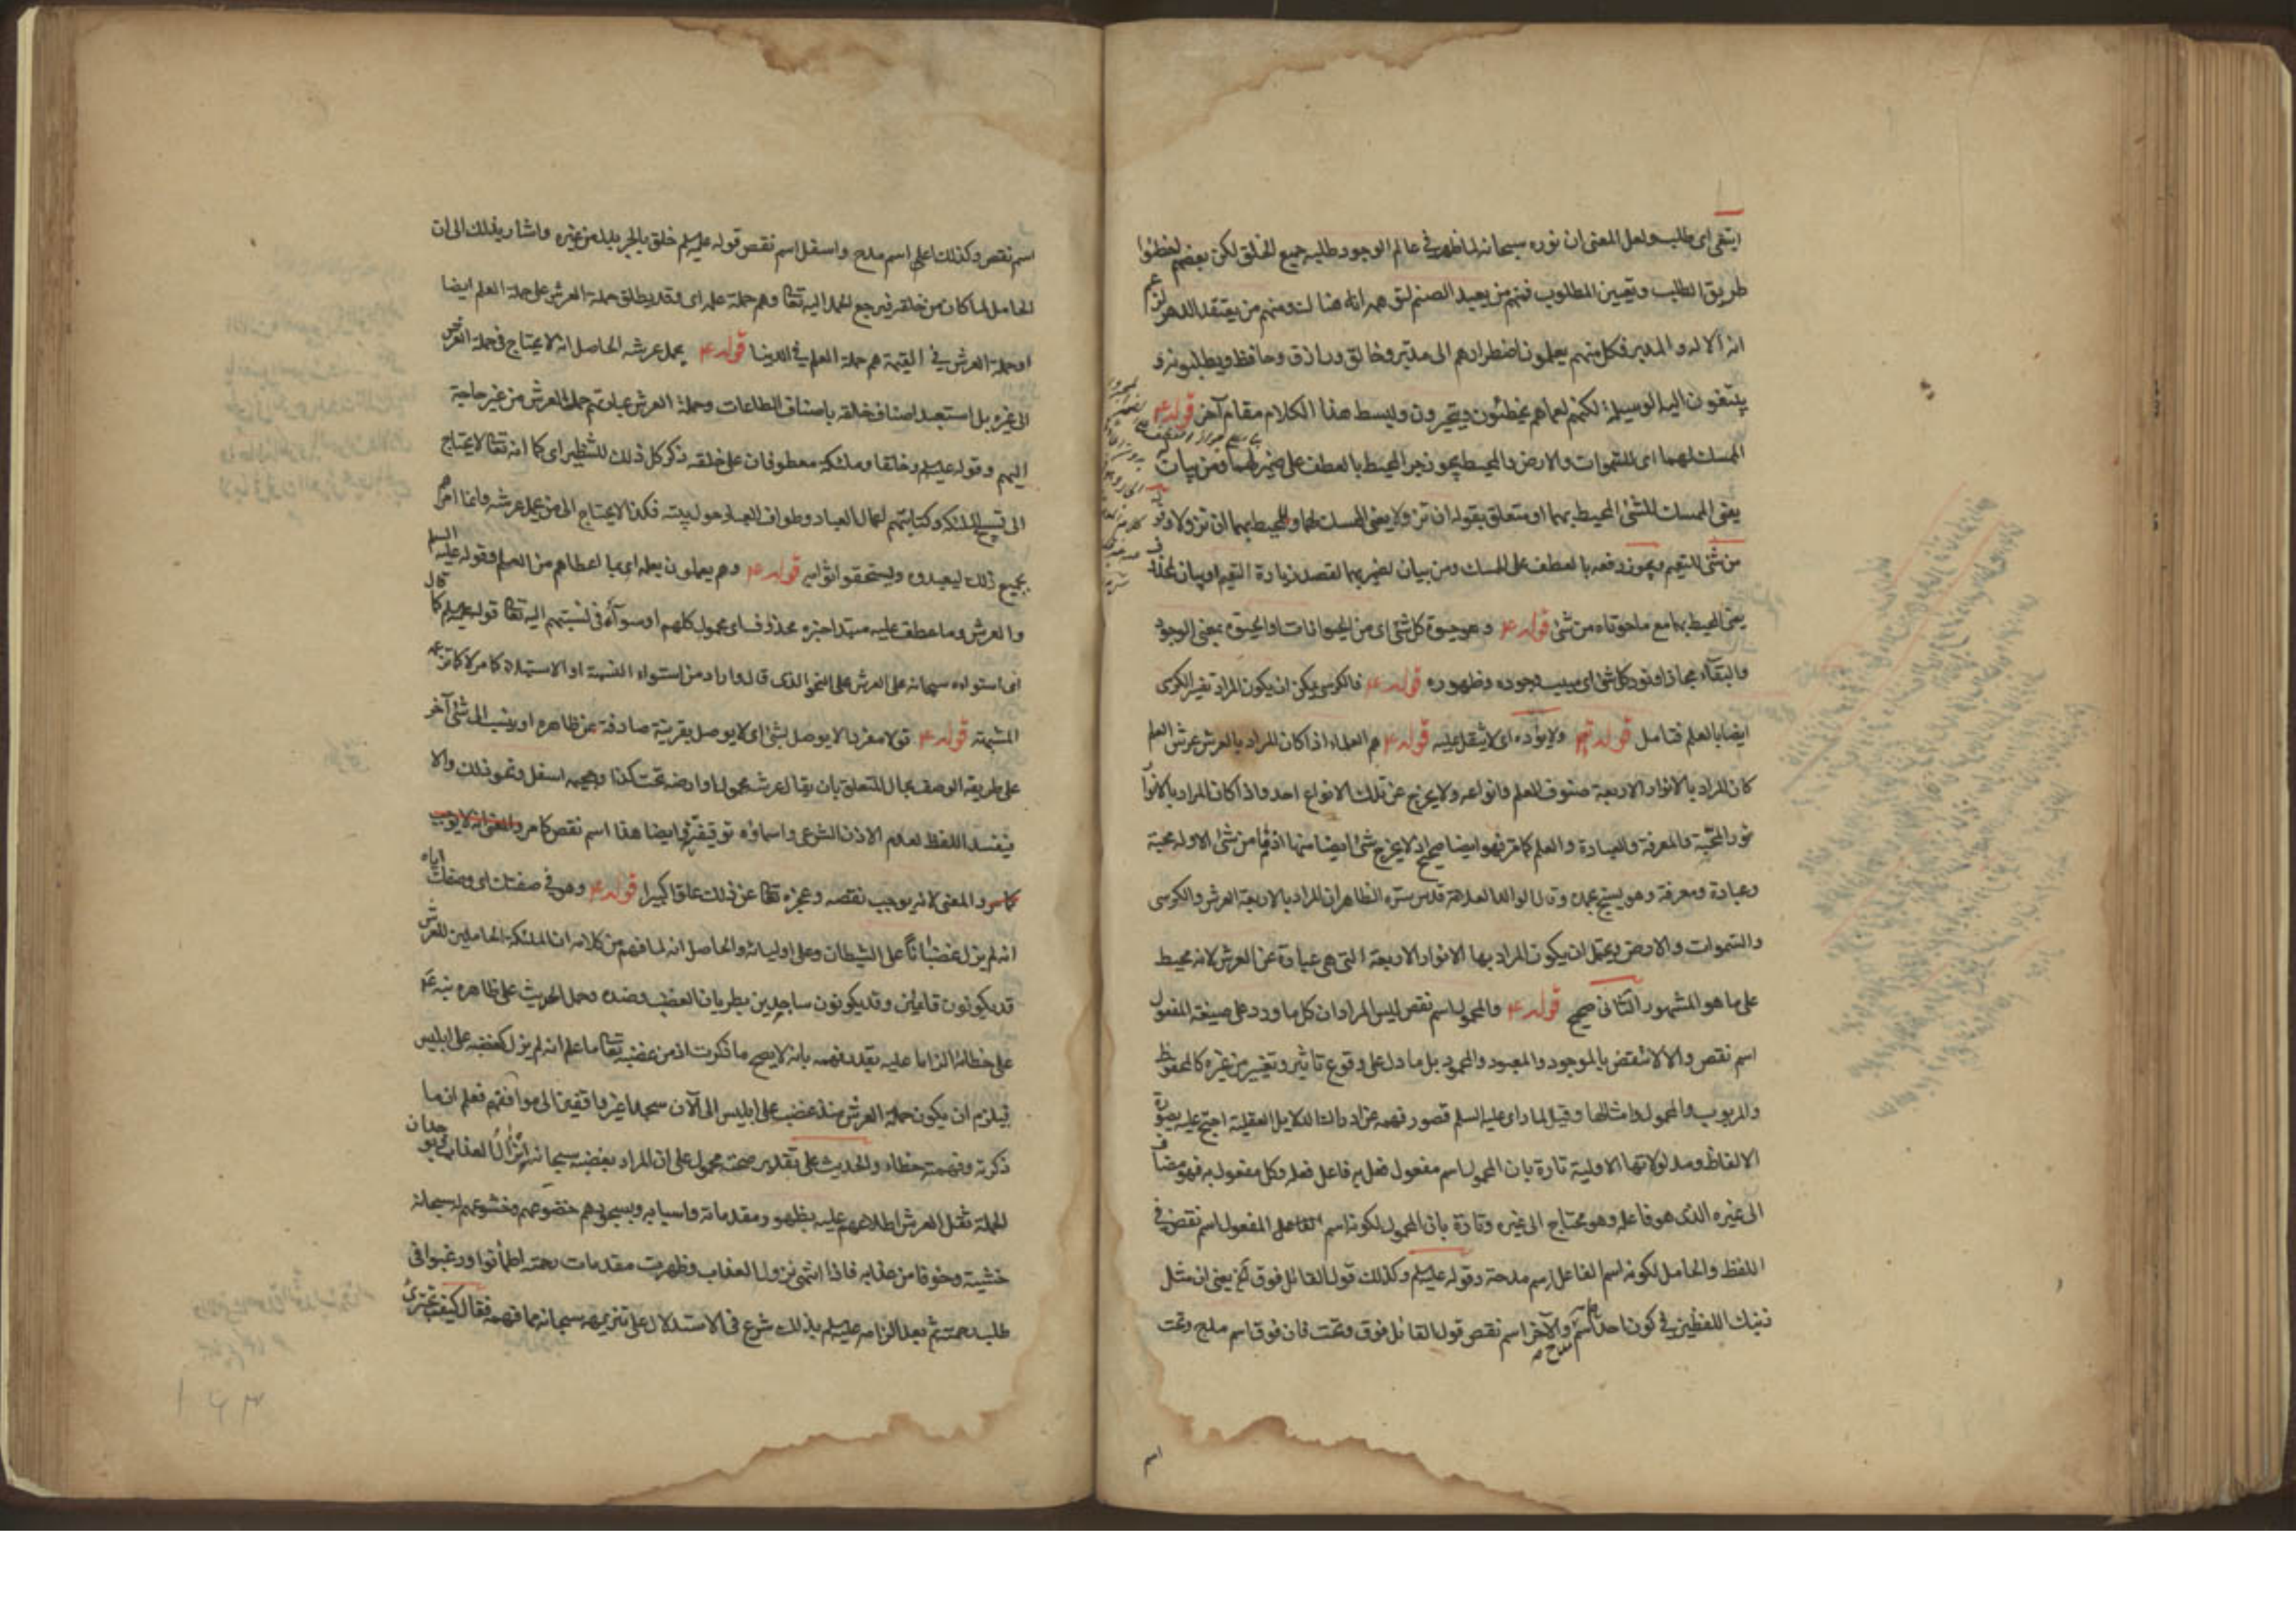 ابتغى اى طلب ولعل المعنى ان نوره سبحانه لما ظهر فى عالم الوجود طلبه جميع الخلق لكن بعضهم اخطئوا
طريق الطلب وتعيين المطلوب فمنهم من يعبد الصنم لتوهمه انه هنالك ومنهم من يعتقد الدهر لزعمه
انه الاله والمدبر فكل منهم يعلمون اضطرارهم الى مدبر وخالق ورازق وحافظ ويطلبونه و
يبتغون اليه الوسيلة لكنهم لعماهم يخطئون ويتحيرون ولبسط هذا الكلام مقام آخر قوله ع
الممسك لهما اى للسموات والارض والمحيط يجوز جر المحيط بالعطف على ضمير لهما ومن بيان
يعنى الممسك للشئ المحيط بهما او متعلق بقوله ان تزولا يعنى الممسك لهما والمحيط بهما ان تزولا وقوله
من شئ للتعميم ويجوز رفعه بالعطف على الممسك ومن بيان لضمير بهما لقصد زيادة التعميم او بيان لمحذوف
يعنى المحيط بهما مع ما حوتاه من شئ قوله ع وهو حيوة كل شئ اى من الحيوانات او الحيوة بمعنى الوجود
والبقاء مجازا ونور كل شئ اى سبب وجوده وظهوره قوله ع فالكرسى يمكن ان يكون المراد تفسير الكرسى
ايضا بالعلم فتامل قوله تعم ولا يؤده اى لا يثقل عليه قوله ع هم العلماء اذا كان المراد بالعرش عرش العلم
كان المراد بالانوار الاربعة صنوف العلم وانواعه ولا يخرج عن تلك الانواع احد واذا كان المراد بالانوار
نور المحبة والمعرفة والعبادة والعلم كما مر فهو ايضا صحيح اذ لا يخرج شئ ايضا منها اذ ما من شئ الا وله محبة
وعبادة ومعرفة وهو يسبح بحمده وقال الوالد العلامة قدس سره الظاهر ان المراد بالاربعة العرش والكرسى
والسموات والارض ويحتمل ان يكون المراد بها الانوار الاربعة التى هى عبارة عن العرش لانه محيط
على ما هو المشهور الثانى صحيح قوله ع والمحمول اسم نقص ليس المراد ان كل ما ورد على صيغة المفعول
اسم نقص والا لانتقض بالموجود والمعبود والمحمود بل ما دل على وقوع تاثير وتغيير من غيره كالمحفوظ
والمربوب والمحمول وامثالها وقيل لما راى عليه السلم قصور فهمه عن ادراك الدلايل العقلية احتج عليه بصورة
الالفاظ ومدلولاتها الاولية تارة بان المحمول اسم مفعول فعل به فاعل فعله وكل مفعول به فهو مضاف
الى غيره الذى هو فاعله وهو محتاج الى غيره وتارة بان المحمول لكونه اسم المفعول اسم نقص فى
اللفظ والحامل لكونه اسم الفاعل اسم مدحة وقوله عليه السلم وكذلك قول القائل فوق الخ يعنى ان مثل
ذينك اللفظين فى كون احدهما اسم مدح والآخر اسم نقص قول القائل فوق وتحت فان فوق اسم مدح وتحت
اسم
اسم نقص وكذلك اعلى اسم مدح واسفل اسم نقص قوله عليه السلم خلق بالجر بدل من غيره واشار بذلك الى ان
الحامل لما كان من خلقه فيرجع الحمل اليه تعالى وهم حملة علمه اى وقد يطلق حملة العرش على حملة العلم ايضا
او حملة العرش فى القيمة هم حملة العلم فى الدنيا قوله ع يحمل عرشه الحاصل انه لا يحتاج فى حمله العرش
الى غيره بل استعبد اصناف خلقه باصناف الطاعات وحملة العرش عبادتهم حمل العرش من غير حاجة
اليهم وقوله عليه السلم وخلقا وملئكة معطوفان على خلقه ذكر كل ذلك للتنظير اى كما انه تعالى لا يحتاج
الى تسبيح الملئكة وكتابتهم اعمال العباد وطواف العباد حول بيته فكذا لا يحتاج الى من يحمل عرشه وانما امرهم
بجميع ذلك ليعبدوه وليستحقوا ثوابه قوله ع وهم يعملون بعلمه اى بما اعطاهم من العلم وقوله عليه السلم
والعرش وما عطف عليه مبتدا خبره محذوف اى محمول كلهم او سواء فى نسبتهم اليه تعالى قوله عليه السلم كما قال
اى استواؤه سبحانه على العرش على النحو الذى قال واراد من استواء النسبة او الاستيلاء كما مر لا كما تزعمه
المشبهة قوله ع قولا مفردا لا يوصل بشئ اى لا يوصل بقرينة صارفة عن ظاهره او ينسب الى شئ آخر
على طريقة الوصف بحال المتعلق بان يقال عرشه محمول او ارضه تحت كذا وجحيمه اسفل ونحو ذلك والا
فيفسد اللفظ لعدم الاذن الشرعى واسماؤه توقيفية وايضا هذا اسم نقص كما مر
والمعنى لانه يوجب نقصه وعجزه تعالى عن ذلك علوا كبيرا قوله ع وهو فى صفتك اى وصفك اياه
انه لم يزل غضبانا على الشيطان وعلى اوليائه والحاصل انه لما فهم من كلامه ان الملئكة الحاملين للعرش
قد يكونون قائمين وقد يكونون ساجدين بطريان الغضب وضده وحمل الحديث على ظاهره نبه ع
على خطائه الزاما عليه بقدر فهمه بانه لا يصح ما ذكرت اذ من غضبه تعالى ما علم انه لم يزل كغضبه على ابليس
فيلزم ان يكون حملة العرش منذ غضب على ابليس الى الآن سجدا غير واقفين الى مواقفهم فعلم ان ما
ذكرته وفهمته خطاء والحديث على تقدير صحته محمول على ان المراد بغضبه سبحانه انزال العذاب وبوجدان
الحملة ثقل العرش اطلاعهم عليه بظهور مقدماته واسبابه وبسجودهم خضوعهم وخشوعهم له سبحانه
خشية وخوفا من عذابه فاذا انتهى نزول العذاب وظهرت مقدمات رحمته اطمأنوا ورغبوا فى
طلب رحمته ثم بعد الزامه عليه السلم بذلك شرع فى الاستدلال على تنزيهه سبحانه مما فهمه فقال كيف تجترئ